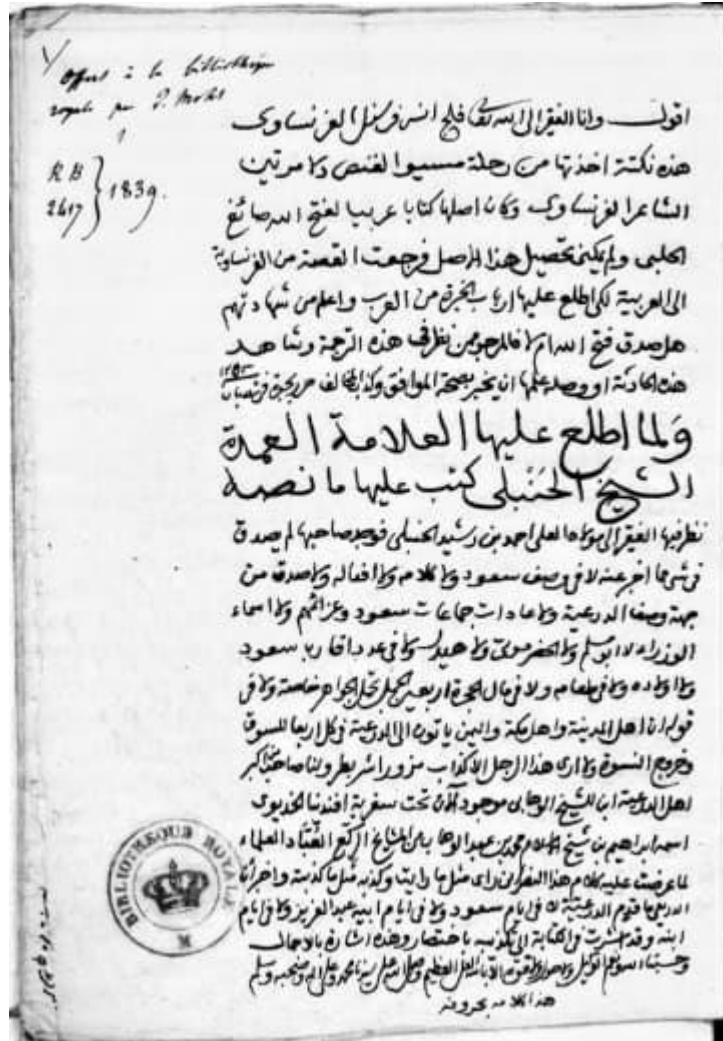 Offert à la bibliothèque
royale par J. Mohl
R B
2617
1839.
اقول وانا الفقير الى الله تعالى فلجانس فرسنل الفرنساوي
هذه نكتة اخذتها من رحلة مسيو الفنص دلامرتين
الشاعر الفرنساوي وكان اصلها كتابا عربيا لفتح الله صائغ
الحلبي ولم يمكني تحصيل هذا الاصل فرجعت القصة من الفرنساوية
الى العربية لكي اطلع عليها ارباب الخبرة من العرب واعلم من شهادتهم
هل صدق فتح الله ام لا فالمرجو ممن نظر في هذه الترجمة وشاهد
هذه الحادثة او وصله علمها ان يخبر بصحة الموافق وكذب المخالف
ولما اطلع عليها العلامة العمدة
الشيخ الحنبلي كتب عليها ما نصه
نظر فيها الفقير الى مولاه العلي احمد بن رشيد الحنبلي فوجد صاحبها لم يصدق
في شي مما اخبر عنه لا في وصف سعود ولا كلامه ولا افعاله ولا صدق من
جهة وصف الدرعية ولا عادات جماعات سعود وعزائمهم ولا اسماء
الوزراء لا ابو مسلم ولا الحضرموتي ولا هيدل ولا في عدد اقارب سعود
ولا اولاده ولا في طعامه ولا في مال الحجرة اربعين جمل تحمل الجواهر خاصة ولا في
قوله ان اهل المدينة واهل مكة واليمن ياتون الى الدرعية في كل اربعا للسوق
وخروج النسوة ولا ارى هذا الرجل الا كذاب مزور اشر بطر ولنا صاحب اكبر
اهل الدرعية ابن الشيخ الوهابي موجود الان تحت سفرية افندنا الخديوي
اسمه ابراهيم بن شيخ الاسلام محمد بن عبد الوهاب من المشايخ الركع العباد العلماء
لما عرضت عليه كلام هذا النصراني راى مثل ما رايت وكذبه مثل ما كذبته واخبر ان
الدريعي ما قدم الدرعية لا في ايام سعود ولا في ايام ابيه عبد العزيز ولا في ايام
ابنه وقد اشرت في الكتابة الى تكذيبه باختصار وهذه اشارة بالاجمال
وحسبنا الله ونعم الوكيل ولا حول ولا قوة الا بالله العلي العظيم وصلى الله على سيدنا محمد وعلى اله وصحبه وسلم
هذا كلامه بحروفه
BIBLIOTHEQUE ROYALE